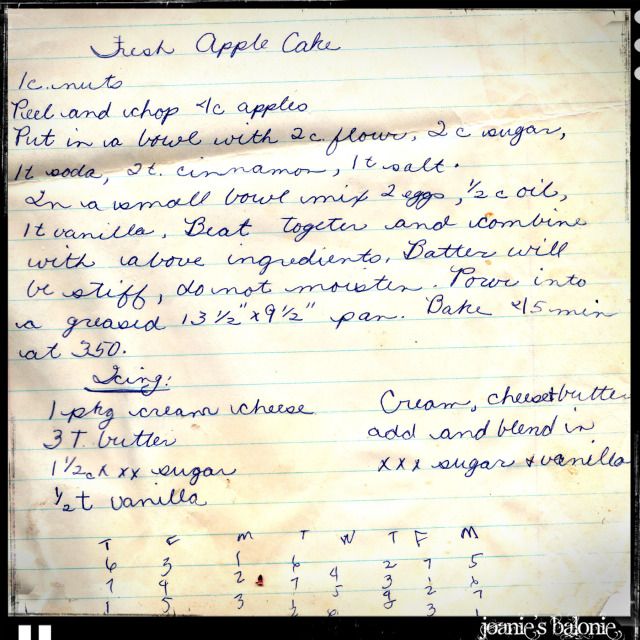 Fresh Apple Cake
1 c. nuts
Peel and chop 4c apples
Put in a bowl with 2 c flour, 2 c sugar,
1t soda, 2t. cinnamon, 1t salt.
In a small bowl mix 2 eggs, 1/2 c oil,
1t vanilla, Beat togeter and combine
with above ingredients. Batter will
be stiff, do not moisten. Pour into
a greased 13 1/2" x 9 1/2" pan. Bake 45 min
at 350.
Icing:
1 pkg cream cheese
3 T. butter
1 1/2 c xxx sugar
1/2 t vanilla
Cream, cheese + butter
add and blend in
xxx sugar + vanilla
T F M T W T F M
6 3 1 6 2 7 5
7 4 2 7 4 3 1 6
1 5 3 5 2 7
3 1
joanie's balonie